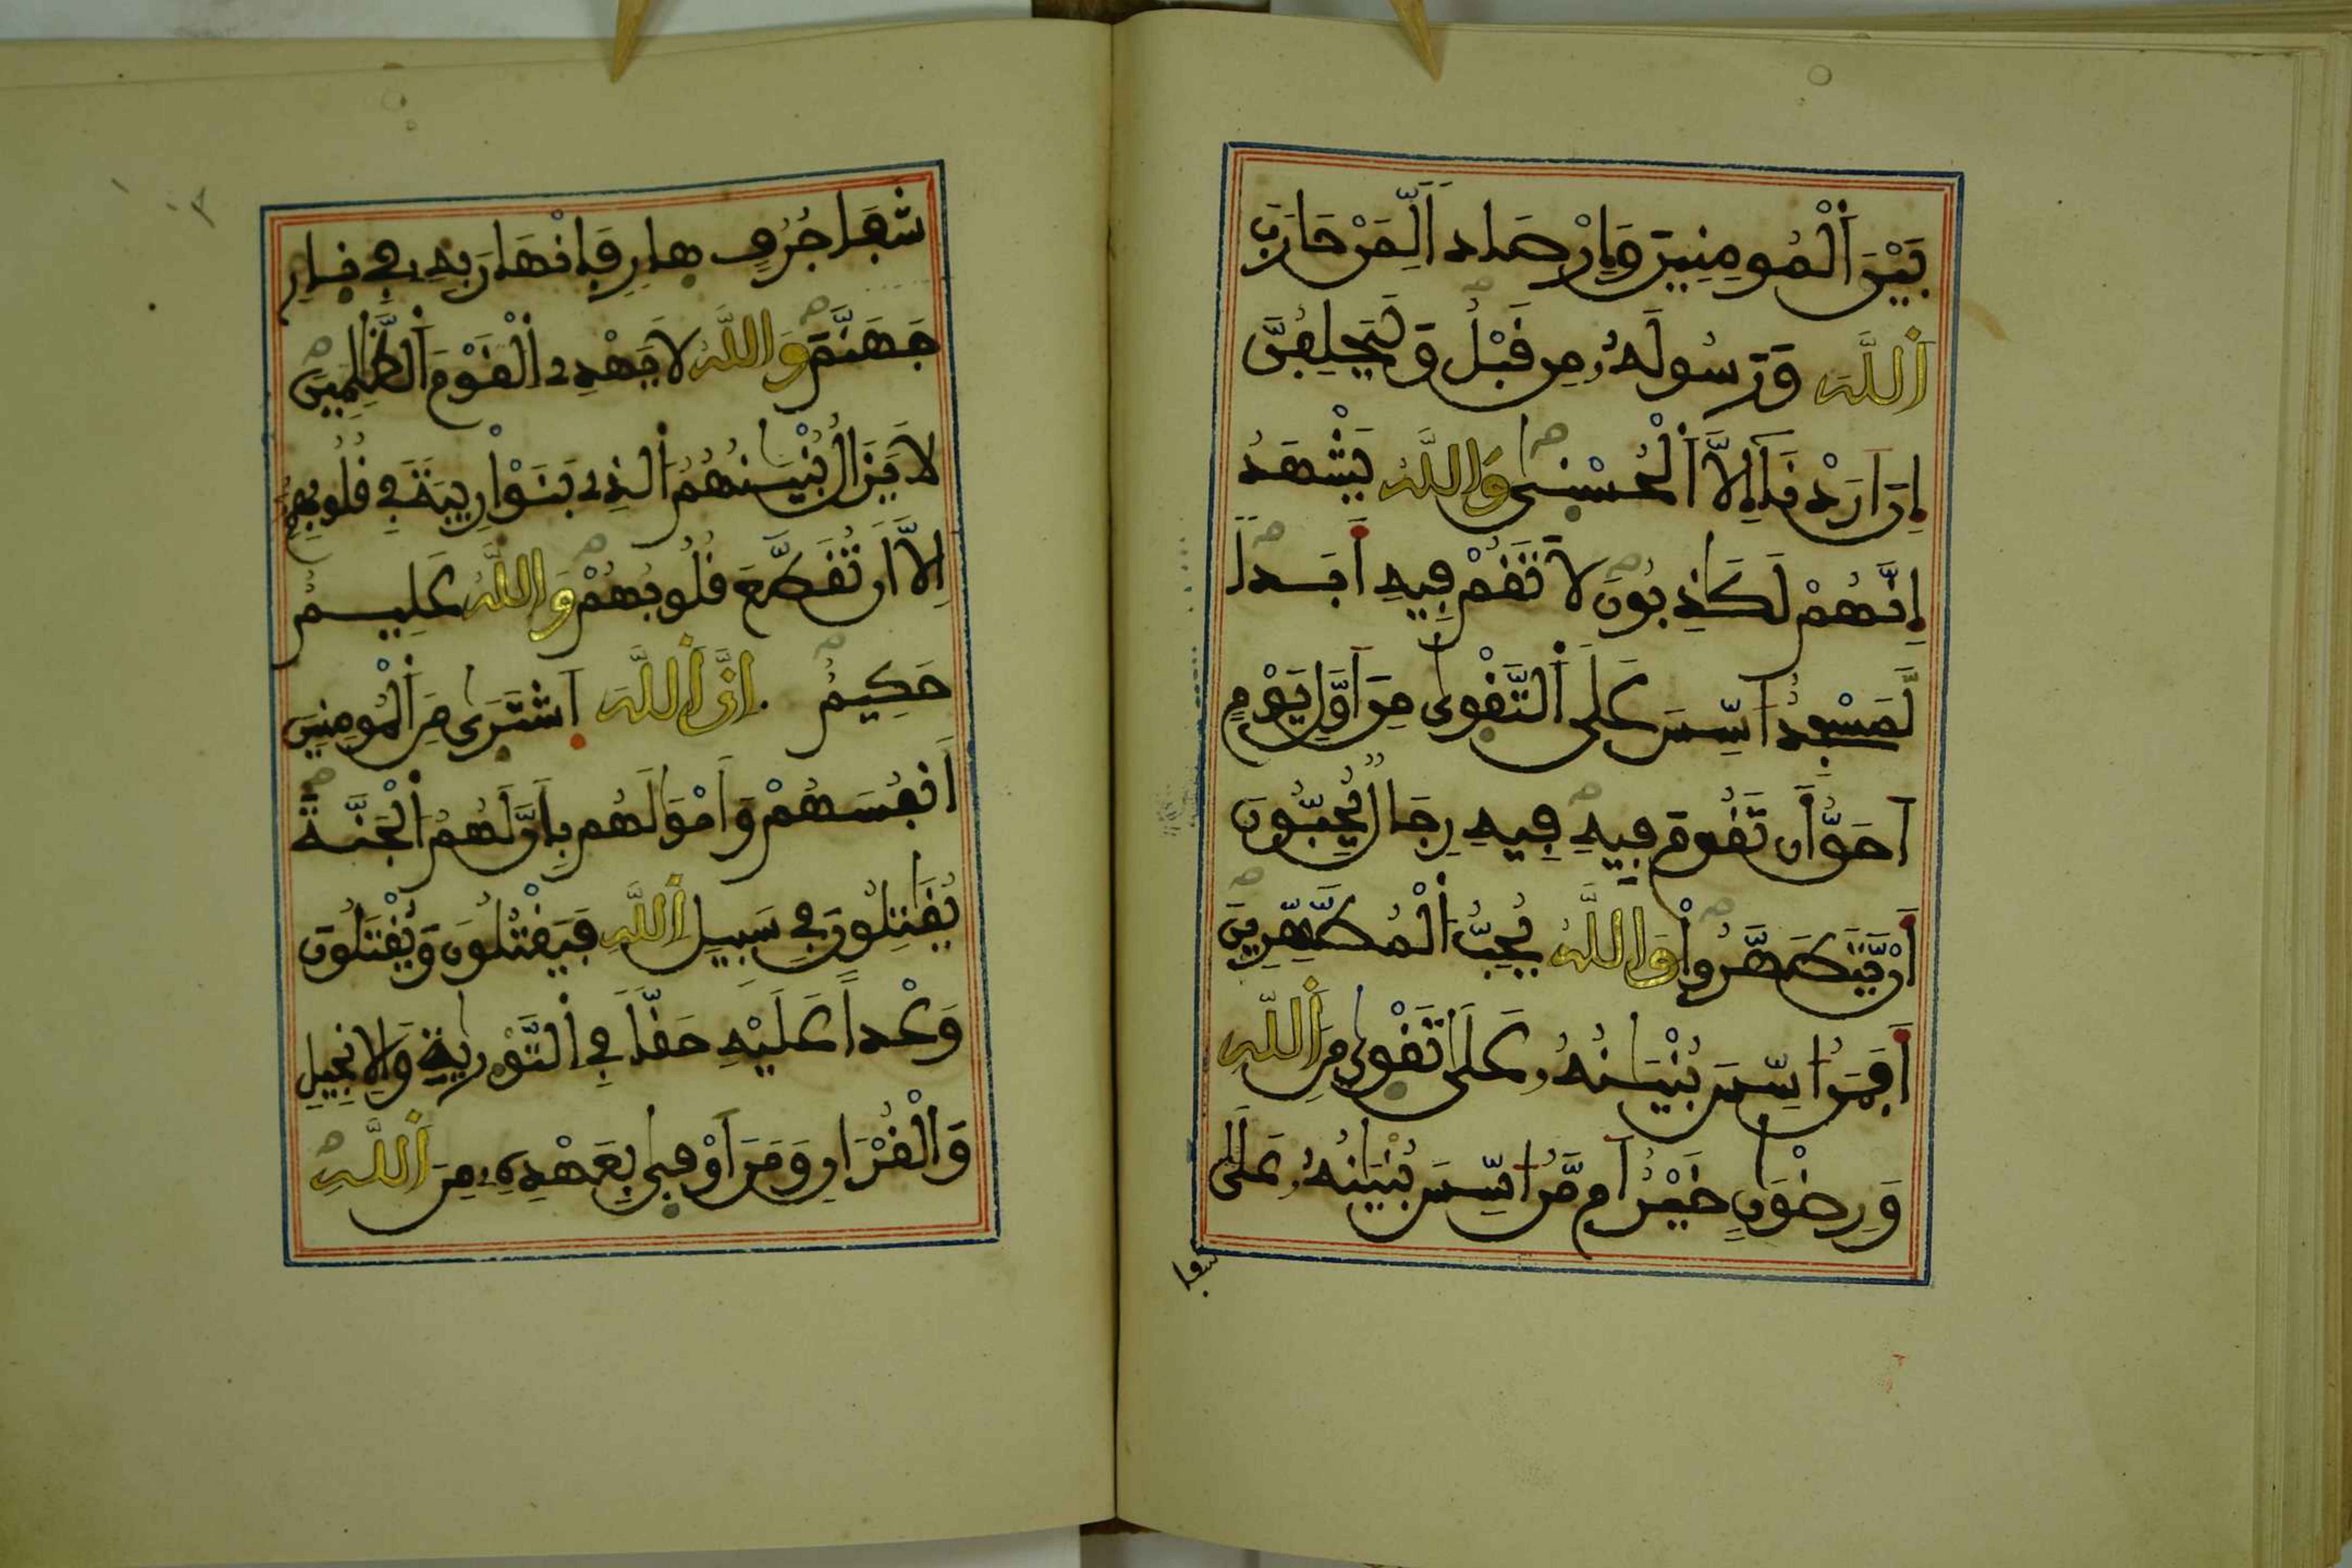 بَيْنَ اَ۬لْمُومِنِينَ وَإِرْصَاداٗ لِّمَنْ حَارَبَ
اَ۬للَّهَ وَرَسُولَهُۥ مِن قَبْلُ وَلَيَحْلِفُنَّ
إِنَ اَرَدْنَا إِلاَّ اَ۬لْحُسْنۭىٰ وَاللَّهُ يَشْهَدُ
إِنَّهُمْ لَكَٰذِبُونَ لَا تَقُمْ فِيهِ أَبَداٗ
لَّمَسْجِدٌ ا۟سِّسَ عَلَى اَ۬لتَّقْوۭىٰ مِنَ اَوَّلِ يَوْمٍ
اَحَقُّ أَن تَقُومَ فِيهِ فِيهِ رِجَالٞ يُحِبُّونَ
أَنْ يَّتَطَهَّرُواْ وَاللَّهُ يُحِبُّ اُ۬لْمُطَّهِّرِينَ
أَفَمَنُ ا۟سِّسَ بُنْيَٰنُهُۥ عَلَىٰ تَقْوۭىٰ مِنَ اَ۬للَّهِ
وَرِضْوَٰنٍ خَيْرٌ اَم مَّنُ ا۟سِّسَ بُنْيَٰنُهُۥ عَلَىٰ
شفا
شَفَا جُرُفٍ هِارٖ فَانْهَارَ بِهِۦ فِي نِارِ
جَهَنَّمَ وَاللَّهُ لَا يَهْدِے اِ۬لْقَوْمَ اَ۬لظَّٰلِمِينَ
لَا يَزَالُ بُنْيَٰنُهُمُ اُ۬لذِے بَنَوْاْ رِيبَةٗ فِي قُلُوبِهِمُۥٓ
إِلَّا أَن تُقَطَّعَ قُلُوبُهُمْ وَاللَّهُ عَلِيمٌ
حَكِيمٌ إِنَّ اَ۬للَّهَ اَ۪شْتَر۪ىٰ مِنَ اَ۬لْمُومِنِينَ
أَنفُسَهُمْ وَأَمْوَٰلَهُم بِأَنَّ لَهُمُ اُ۬لْجَنَّةَ
يُقَٰتِلُونَ فِي سَبِيلِ اِ۬للَّهِ فَيَقْتُلُونَ وَيُقْتَلُونَ
وَعْداً عَلَيْهِ حَقّاٗ فِي اِ۬لتَّوْر۪يٰةِ وَالِانجِيلِ
وَالْقُرْءَانِ وَمَنَ اَوْف۪ىٰ بِعَهْدِهِۦ مِنَ اَ۬للَّهِ